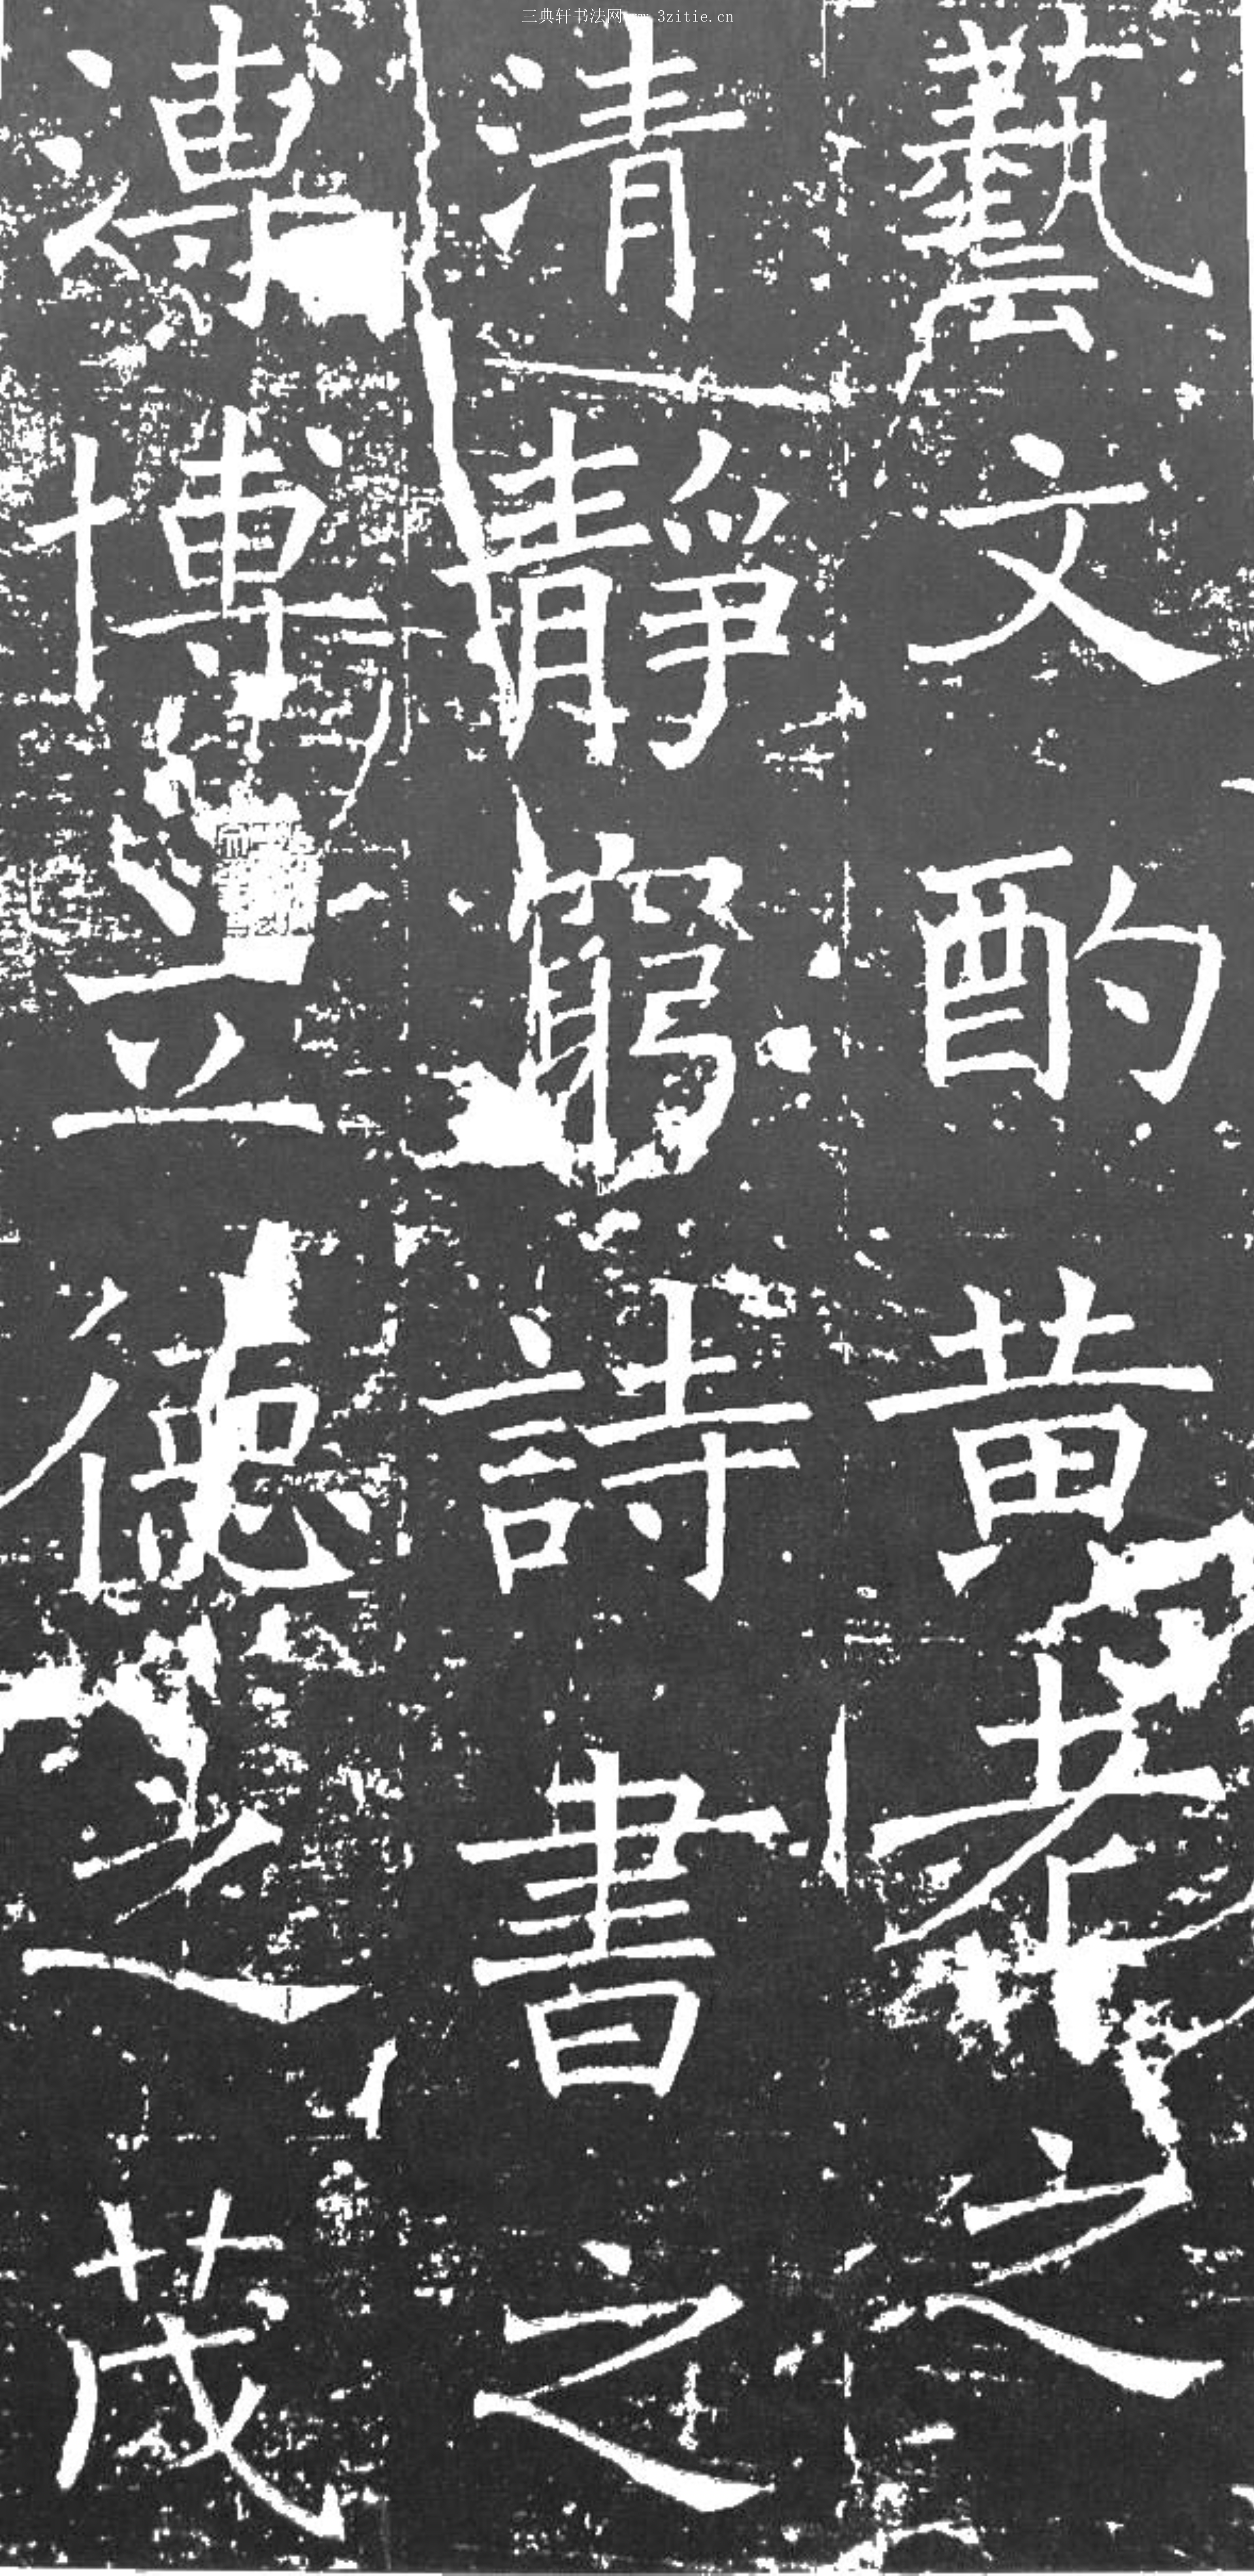 三典轩书法网www.3zitie.cn
藝文酌黄老之
清靜窮詩書之
溥博立德之茂